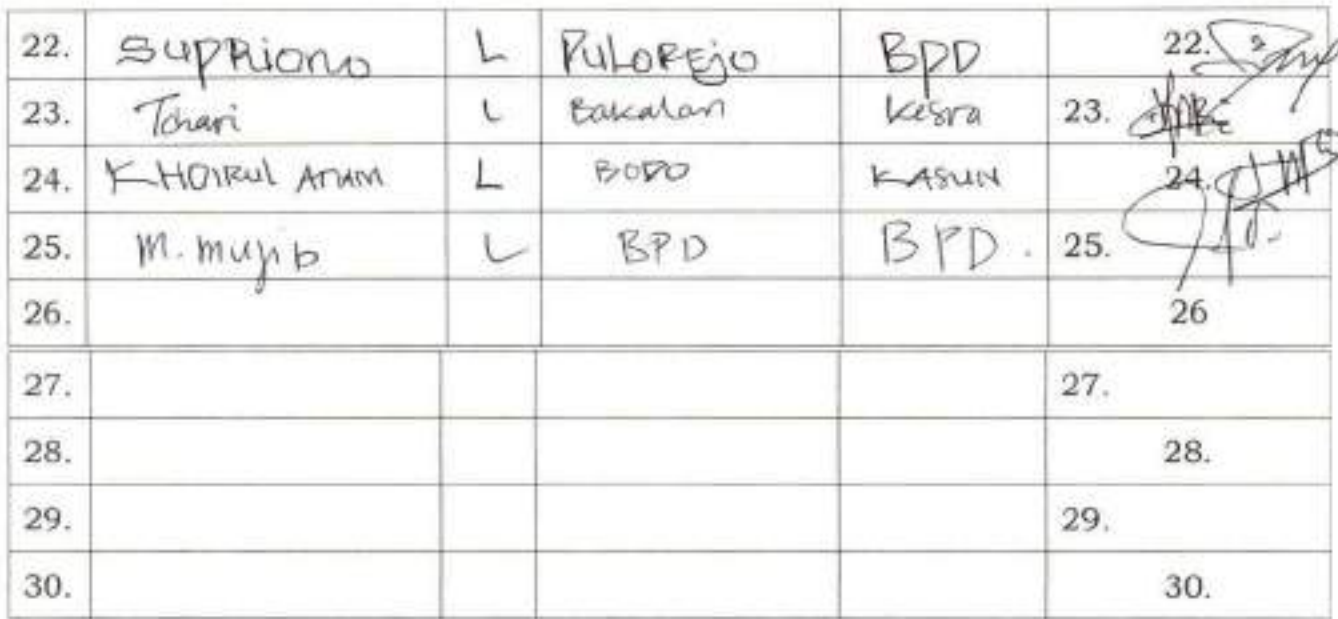 22. Supriono L Pulorejo BPD 22.
23. Tohari L Bakalan Kesra 23.
24. KHOIRUL ANAM L BODO KASUN 24.
25. M. Mujib L BPD BPD. 25.
26. 26
27. 27.
28. 28.
29. 29.
30. 30.